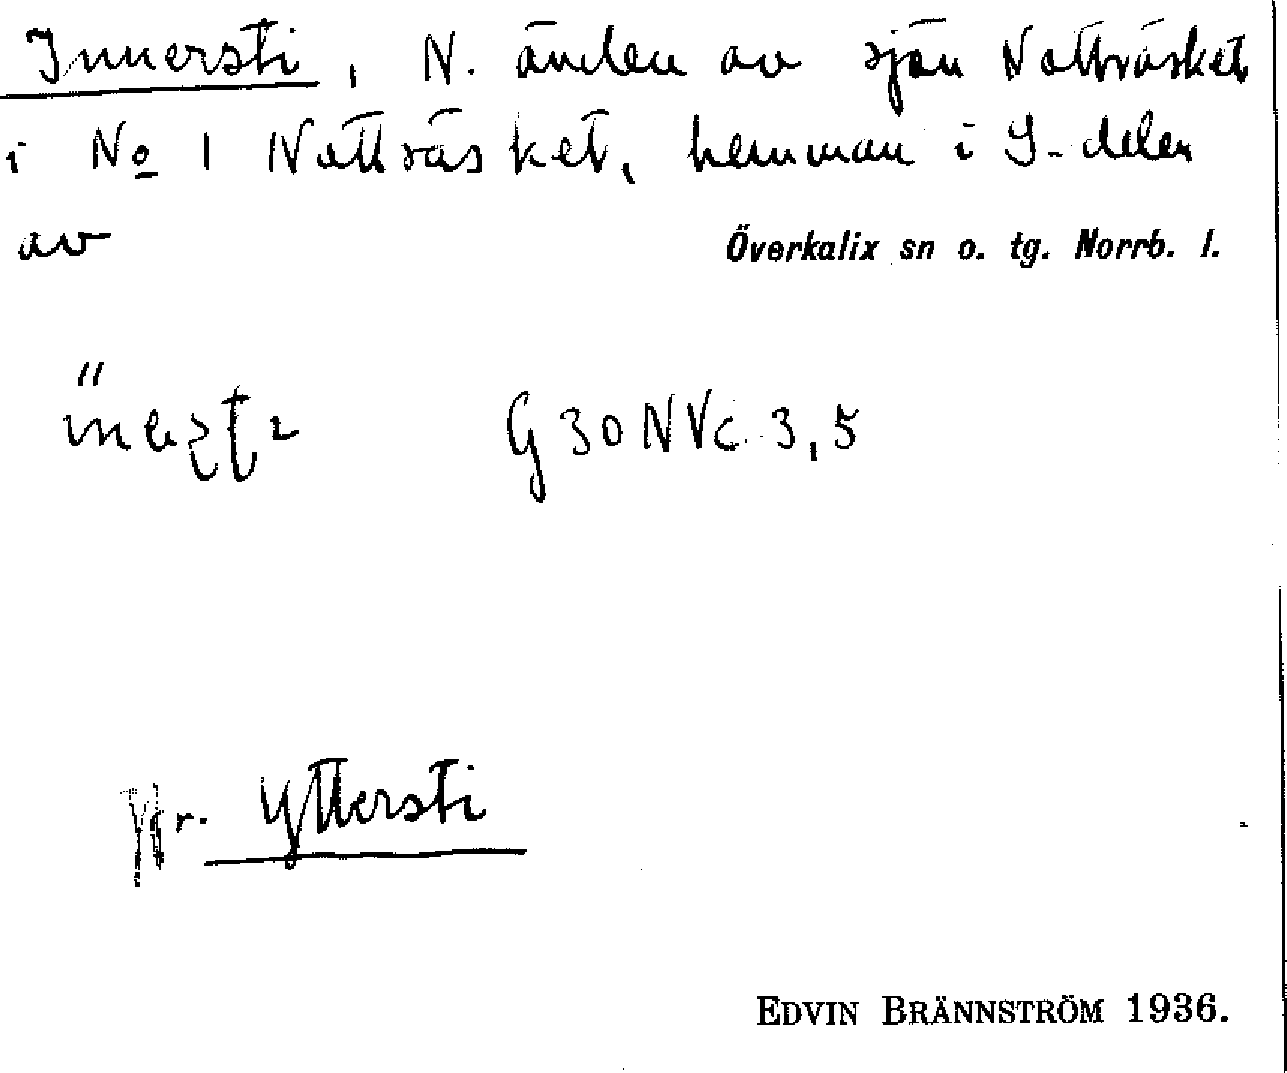 Innersti, N. änden av sjön Nattträsket
i No 1 Nattträsket, hemman i S. delen
av Överkalix sn o. tg. Norrb. l.
G 30 N V c. 3,5
Jfr. Yttersti
EDVIN BRÄNNSTRÖM 1936.